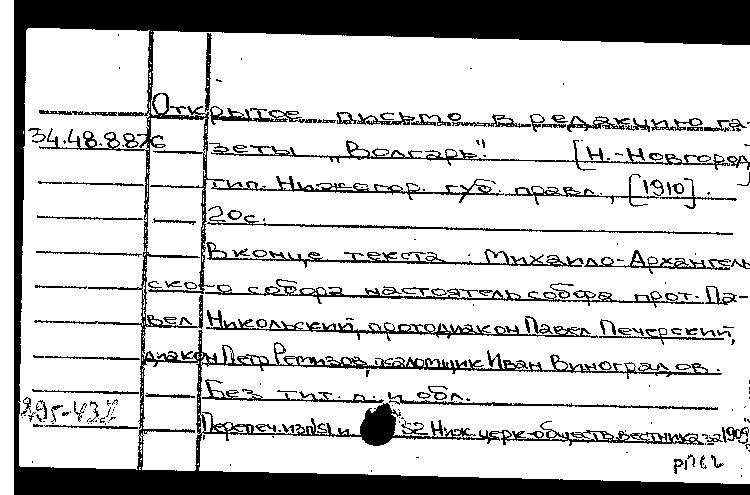 Открытое письмо в редакцию га-
34.48.8.876 зеты „Волгарь". [Н.-Новгород]
тип. Нижегор. губ. правл., [1910].
20с.
В конце текста: Михаило-Архангель-
ского собора настоятель собора прот. Па-
вел Никольский, протодиакон Павел Печерский,
диакон Петр Ремизов, псаломщик Иван Виноградов.
Без тит. л. и обл.
295-432
Перепеч. из №51 и 52 Ниж. церк.-обществ. вестника за 1909